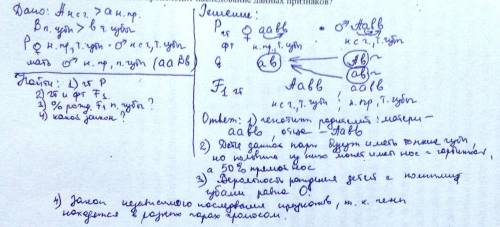 наследование данных признаков?
Дано: A н.с г. > a н. пр.
B п. губы > b т. губы
P ♀ н. пр, т. губы · ♂ н с г, т. губы
мать ♂ н. пр, п. губы (aaBb)
Найти: 1) гт P
2) гт и фт F₁
3) % рожд. F₁ п. губы?
4) какой закон?
Решение:
P гт ♀ aabb · ♂ Aabb
фт н. пр., т. губы н с г, т. губы
G ab Ab
ab
F₁ гт Aabb aabb
н с г, т. губы; н. пр, т. губы
Ответ: 1) генотип родителей: матери –
aabb, отца – Aabb
2) Дети данной пары будут иметь тонкие губы,
но половина из них может иметь нос с горбинкой,
а 50% прямой нос
3) Вероятность рождения детей с полными
губами равна 0
4) Закон независимого наследования признаков, т.к. гены
находятся в разных парах хромосом.